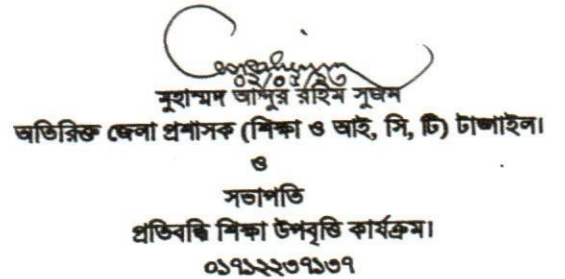 ০২/০৫/২৩
মুহাম্মদ আব্দুর রহিম সুজন
অতিরিক্ত জেলা প্রশাসক (শিক্ষা ও আই, সি, টি) টাঙ্গাইল।
ও
সভাপতি
প্রতিবন্ধি শিক্ষা উপবৃত্তি কার্যক্রম।
০১৭১২২৩৭১৩৭